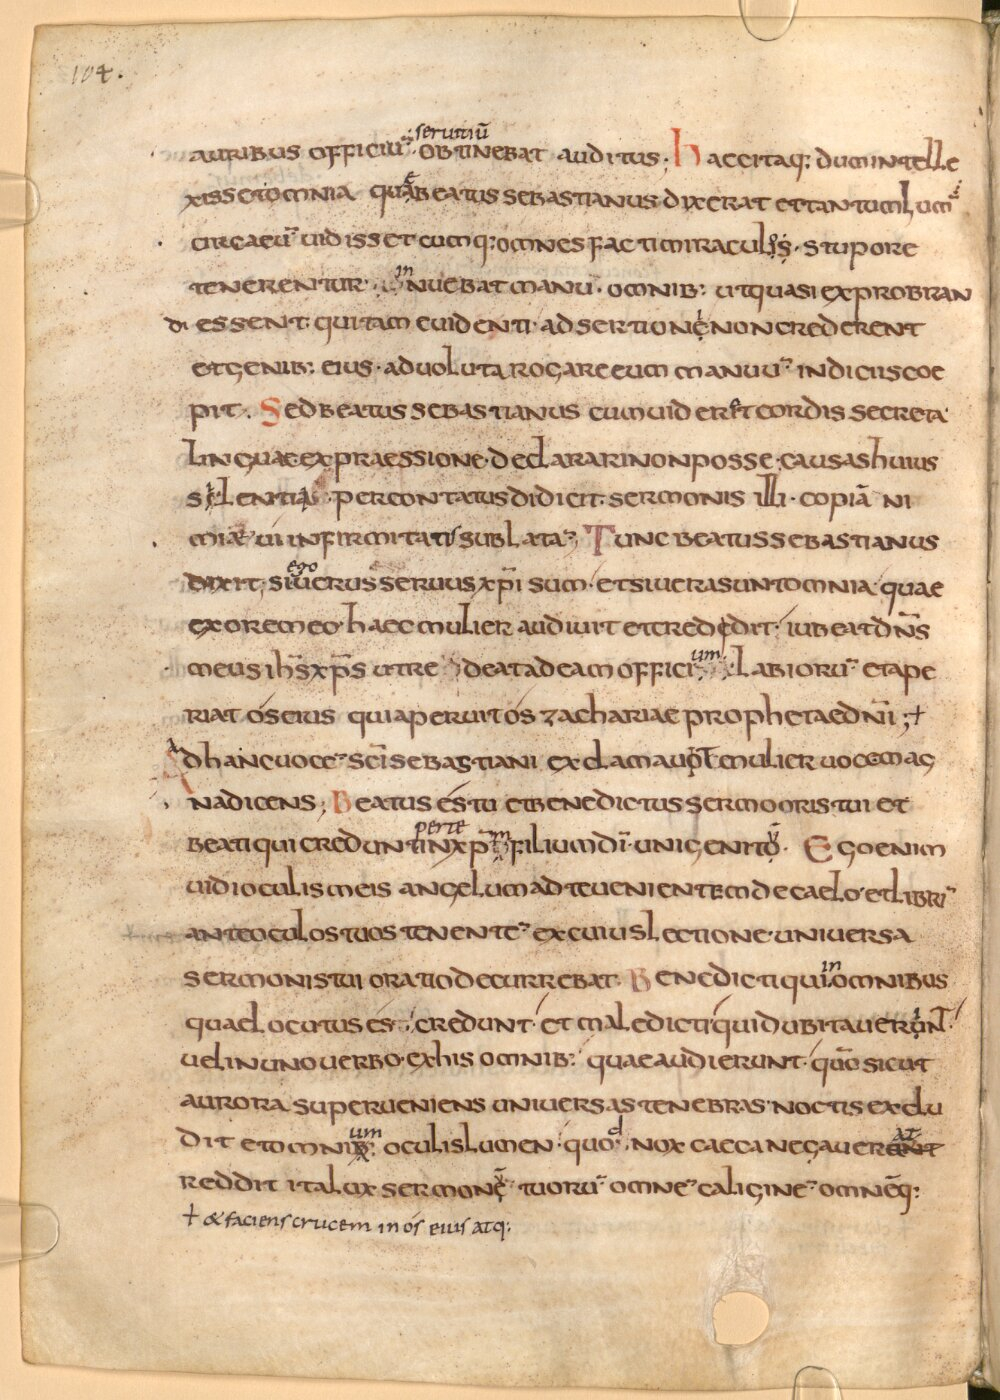 104.
seruitiū
auribus officiū obtinebat auditus; Haec itaq: dum intelle
xisset omnia quae beatus sebastianus dixerat et tantum lum
circa eū uidisset cumq: omnes facti miraculis stupore
tenerentur innuebat manū omnib: ut quasi exprobran
di essent qui tam euidenti adsertioni non crederent
et genib: eius aduoluta rogare eum manuū indiciis coe
pit. Sed beatus sebastianus cum uideret cordis secreta
linguae expraessione declarari non posse causas huius
silentii percontatus didicit sermonis illi copiā ni
mia ui infirmitatis sublatā Tunc beatus sebastianus
ego
dixit; si uerus seruus xp̄i sum et si uera sunt omnia quae
ex ore meo haec mulier audiuit et credidit iubeat dn̄s
um
meus ih̄s xp̄s ut redeat ad eam offici labiorū et ape
riat os eius qui aperuit os zachariae prophetae dn̄i; +
Ad hanc uocē sc̄i sebastiani exclamauit mulier uoce mag
na dicens; Beatus es tu et benedictus sermo oris tui et
per te
beati qui credunt in xp̄m filium dī unigenitū. Ego enim
uidi oculis meis angelum ad te uenientem de caelo et librū
ante oculos tuos tenentē ex cuius lectione uniuersa
in
sermonis tui oratio decurrebat Benedicti qui omnibus
quae locutus es credunt et maledicti qui dubitauerint
uel in uno uerbo ex his omnib: quae audierunt quō sicut
aurora superueniens uniuersas tenebras noctis exclu
um at
dit et omnib: oculis lumen quod nox caeca negauerent
reddit ita lux sermonū tuorū omnē caliginē omnēq:
+ & faciens crucem in os eius atq: